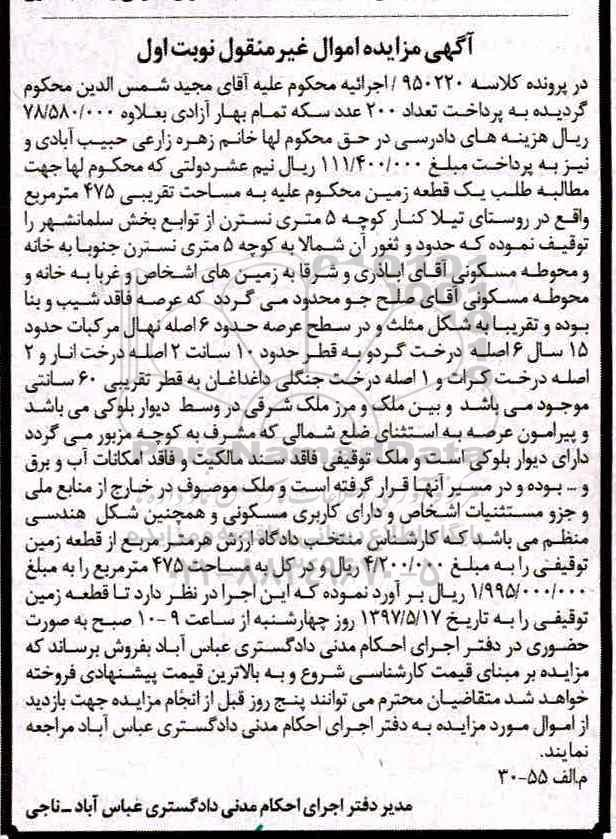 آگهی مزایده اموال غیر منقول نوبت اول
در پرونده کلاسه ۹۵۰۲۲۰ / اجرائیه محکوم علیه آقای مجید شمس الدین محکوم
گردیده به پرداخت تعداد ۲۰۰ عدد سکه تمام بهار آزادی بعلاوه ۷۸/۵۸۰/۰۰۰
ریال هزینه های دادرسی در حق محکوم لها خانم زهره زارعی حبیب آبادی و
نیز به پرداخت مبلغ ۱۱۱/۴۰۰/۰۰۰ ریال نیم عشردولتی که محکوم لها جهت
مطالبه طلب یک قطعه زمین محکوم علیه به مساحت تقریبی ۴۷۵ مترمربع
واقع در روستای تیلا کنار کوچه ۵ متری نسترن از توابع بخش سلمانشهر را
توقیف نموده که حدود و ثغور آن شمالا به کوچه ۵ متری نسترن جنوبا به خانه
و محوطه مسکونی آقای اباذری و شرقا به زمین های اشخاص و غربا به خانه و
محوطه مسکونی آقای صلح جو محدود می گردد که عرصه فاقد شیب و بنا
بوده و تقریبا به شکل مثلث و در سطح عرصه حدود ۶ اصله نهال مرکبات حدود
۱۵ سال ۶ اصله درخت گردو به قطر حدود ۱۰ سانت ۲ اصله درخت انار و ۲
اصله درخت کرات و ۱ اصله درخت جنگلی داغداغان به قطر تقریبی ۶۰ سانتی
موجود می باشد و بین ملک و مرز ملک شرقی در وسط دیوار بلوکی می باشد
و پیرامون عرصه به استثنای ضلع شمالی که مشرف به کوچه مزبور می گردد
دارای دیوار بلوکی است و ملک توقیفی فاقد سند مالکیت و فاقد امکانات آب و برق
و ... بوده و در مسیر آنها قرار گرفته است و ملک موصوف در خارج از منابع ملی
و جزو مستثنیات اشخاص و دارای کاربری مسکونی و همچنین شکل هندسی
منظم می باشد که کارشناس منتخب دادگاه ارزش هرمتر مربع از قطعه زمین
توقیفی را به مبلغ ۴/۲۰۰/۰۰۰ ریال و در کل به مساحت ۴۷۵ مترمربع را به مبلغ
۱/۹۹۵/۰۰۰/۰۰۰ ریال بر آورد نموده که این اجرا در نظر دارد تا قطعه زمین
توقیفی را به تاریخ ۱۳۹۷/۵/۱۷ روز چهارشنبه از ساعت ۹-۱۰ صبح به صورت
حضوری در دفتر اجرای احکام مدنی دادگستری عباس آباد بفروش برساند که
مزایده بر مبنای قیمت کارشناسی شروع و به بالاترین قیمت پیشنهادی فروخته
خواهد شد متقاضیان محترم می توانند پنج روز قبل از انجام مزایده جهت بازدید
از اموال مورد مزایده به دفتر اجرای احکام مدنی دادگستری عباس آباد مراجعه
نمایند.
م.الف ۵۵-۳۰
مدیر دفتر اجرای احکام مدنی دادگستری عباس آباد - ناجی